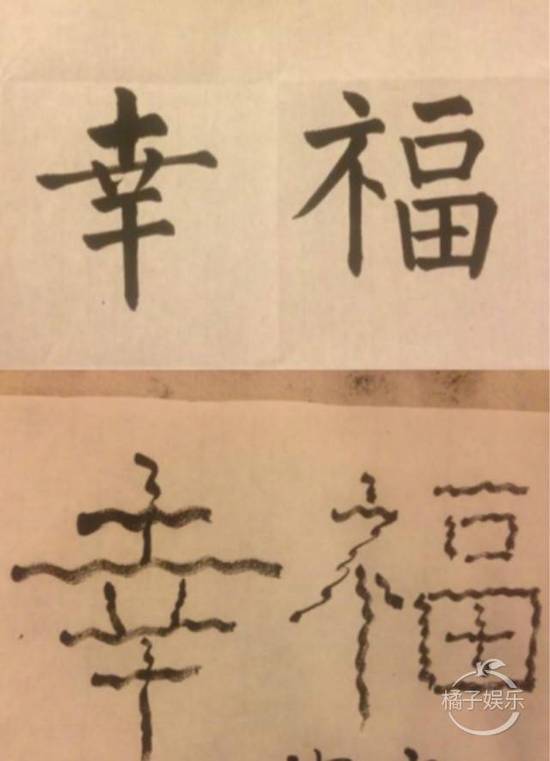 幸福
幸福
橘子娱乐